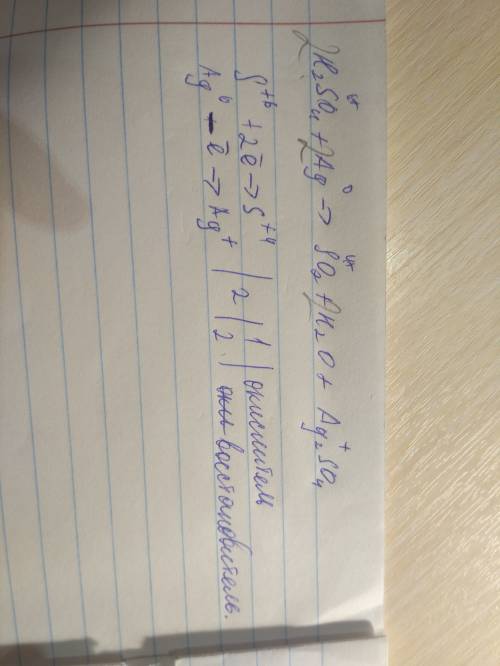 2H₂SO₄ + 2Ag → SO₂ + 2H₂O + Ag₂SO₄
S⁺⁶ + 2ē → S⁺⁴ | 2 | 1 | окислитель
Ag⁰ - ē → Ag⁺ | 2 | восстановитель.